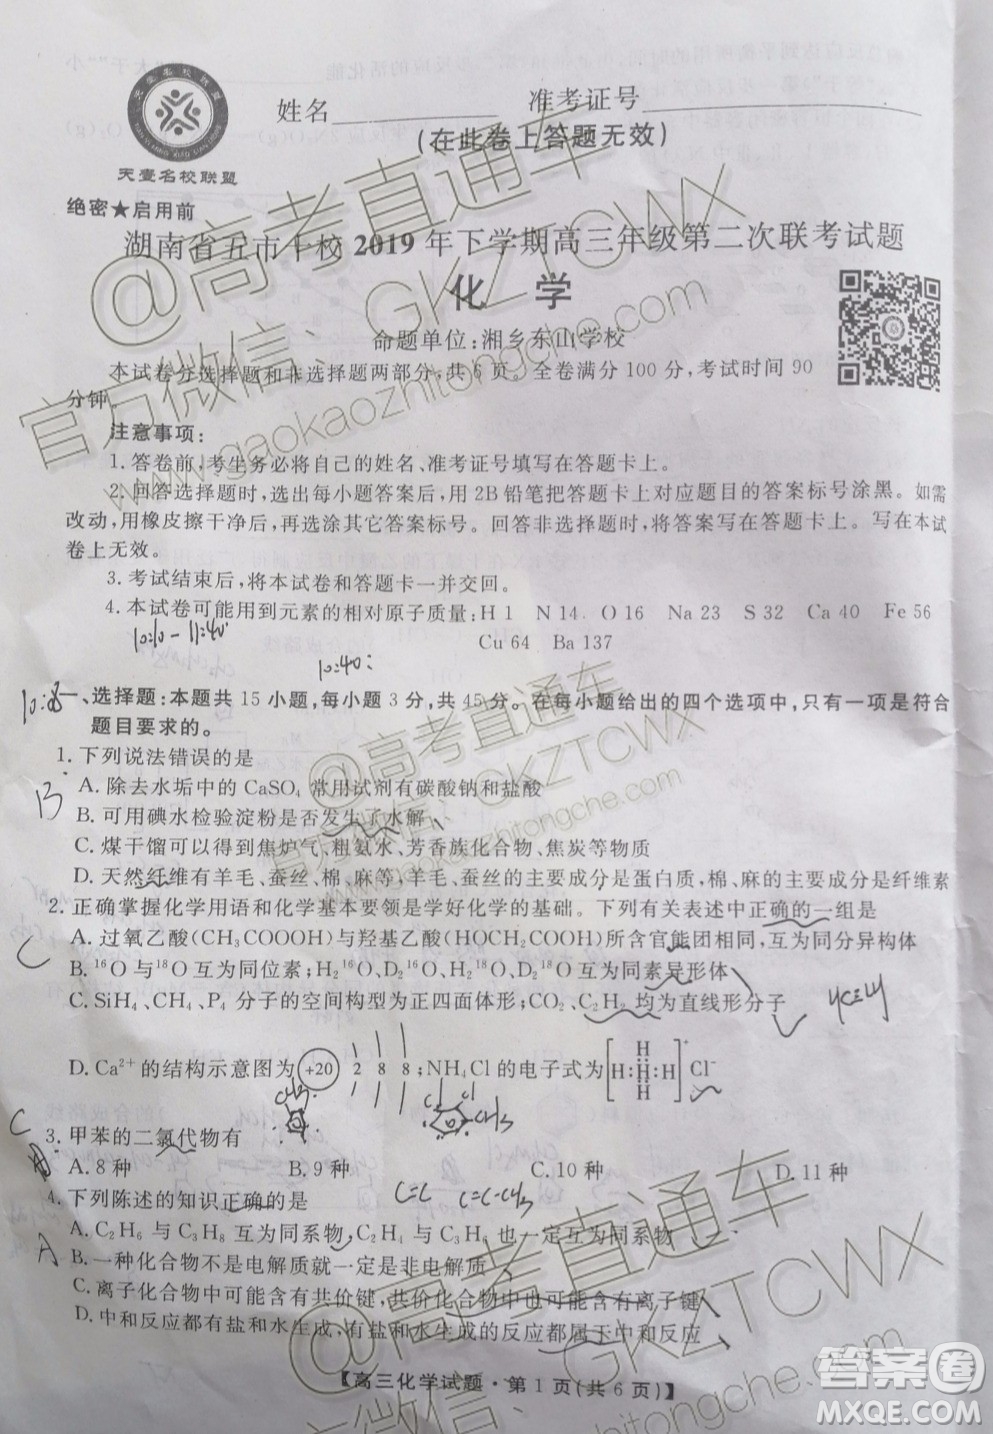 天壹名校联盟
天壹名校联盟
姓名 准考证号
(在此卷上答题无效)
绝密★启用前
湖南省五市十校2019年下学期高三年级第二次联考试题
化 学
命题单位:湘乡东山学校
本试卷分选择题和非选择题两部分,共6页。全卷满分100分,考试时间90
分钟。
注意事项:
1.答卷前,考生务必将自己的姓名、准考证号填写在答题卡上。
2.回答选择题时,选出每小题答案后,用2B铅笔把答题卡上对应题目的答案标号涂黑。如需
改动,用橡皮擦干净后,再选涂其它答案标号。回答非选择题时,将答案写在答题卡上。写在本试
卷上无效。
3.考试结束后,将本试卷和答题卡一并交回。
4.本试卷可能用到元素的相对原子质量:H 1 N 14 O 16 Na 23 S 32 Ca 40 Fe 56
Cu 64 Ba 137
10:10-11:40
10:40:
一、选择题:本题共15小题,每小题3分,共45分。在每小题给出的四个选项中,只有一项是符合
题目要求的。
1.下列说法错误的是
B
A.除去水垢中的CaSO₄常用试剂有碳酸钠和盐酸
B.可用碘水检验淀粉是否发生了水解
C.煤干馏可以得到焦炉气、粗氨水、芳香族化合物、焦炭等物质
D.天然纤维有羊毛、蚕丝、棉、麻等,羊毛、蚕丝的主要成分是蛋白质,棉、麻的主要成分是纤维素
2.正确掌握化学用语和化学基本要领是学好化学的基础。下列有关表述中正确的一组是
C
A.过氧乙酸(CH₃COOOH)与羟基乙酸(HOCH₂COOH)所含官能团相同,互为同分异构体
B.¹⁶O与¹⁸O互为同位素;H₂¹⁶O、D₂¹⁶O、H₂¹⁸O、D₂¹⁸O互为同素异形体
C.SiH₄、CH₄、P₄分子的空间构型为正四面体形;CO₂、C₂H₂均为直线形分子
D.Ca²⁺的结构示意图为 +20 2 8 8;NH₄Cl的电子式为[H H H H]⁺Cl⁻
CH₃ Cl Cl CH₃
3.甲苯的二氯代物有
C
A.8种 B.9种 C.10种 D.11种
4.下列陈述的知识正确的是
C=C C=C-CH₃
A
A.C₂H₆与C₃H₈互为同系物,C₂H₄与C₃H₆也一定互为同系物
B.一种化合物不是电解质就一定是非电解质
C.离子化合物中可能含有共价键,共价化合物中也可能含有离子键
D.中和反应都有盐和水生成,有盐和水生成的反应都属于中和反应
【高三化学试题·第1页(共6页)】
@高考直通车
官方微信:GKZTCWX
www.gaokaozhitongche.com
答案卷
MXQE.COM